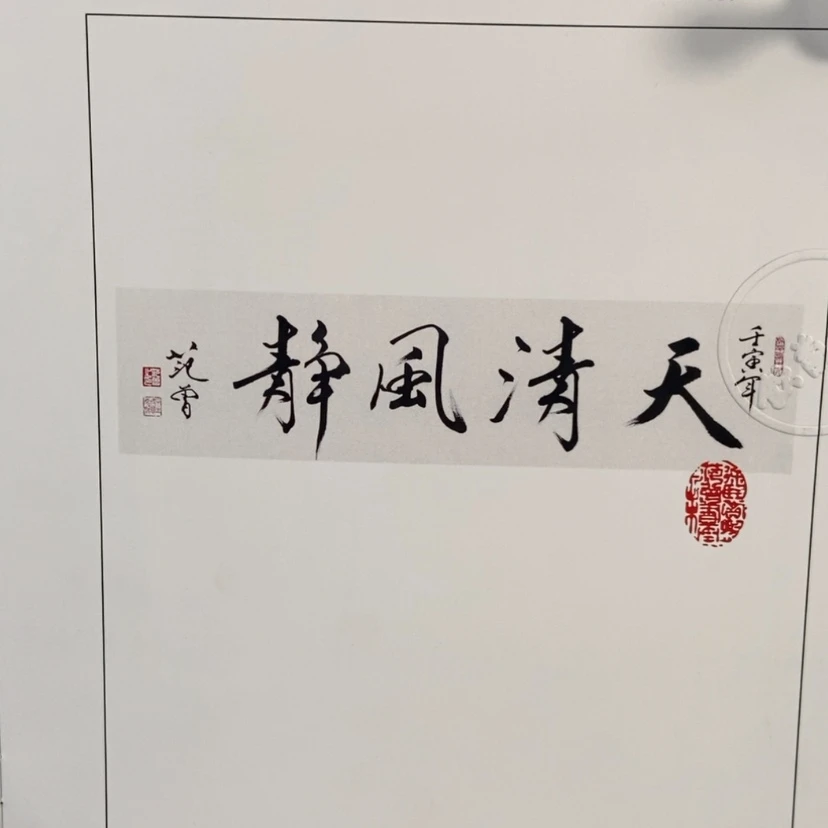 壬寅年
天清風靜
范曾